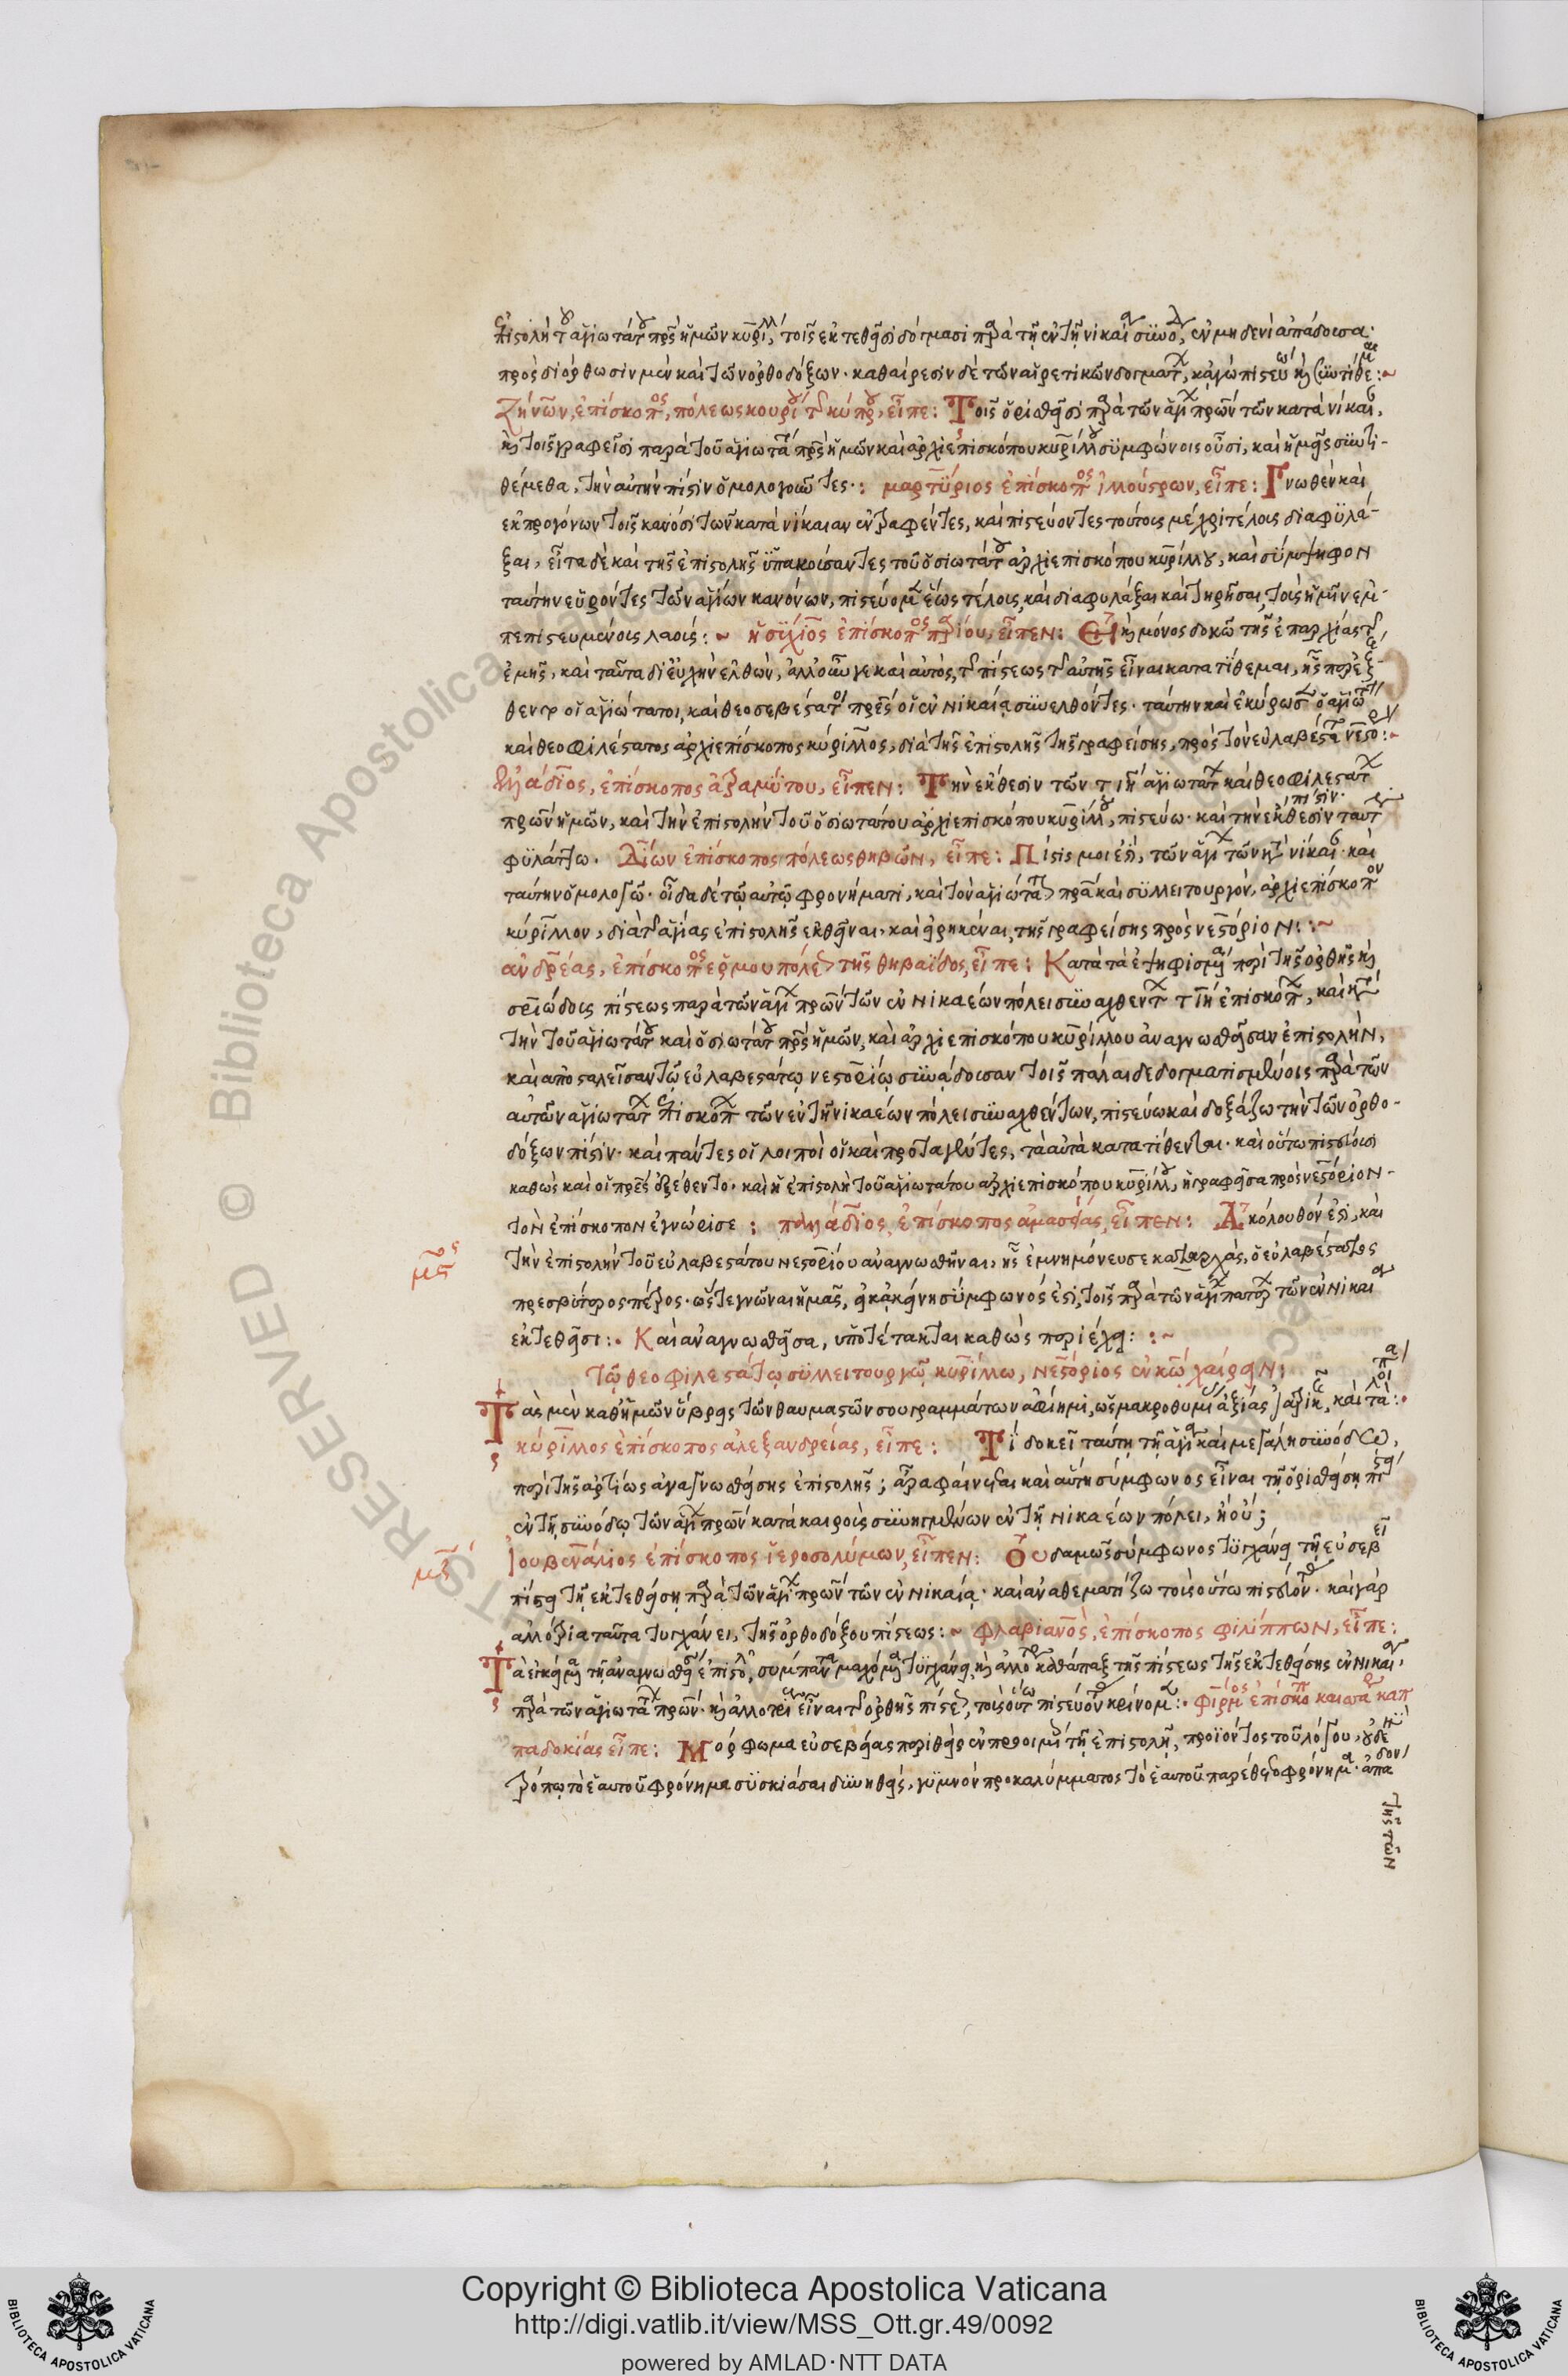 ἐπιστολὴ τοῦ ἁγιωτάτου πρς ἡμῶν κυρίλλου, τοῖς ἐκτεθεῖσι δόγμασι παρὰ τῆς ἐν τῇ νικαίᾳ συνόδου, ἐν μηδενὶ ἀπάδουσα·
πρὸς διόρθωσιν μὲν καὶ τῶν ὀρθοδόξων· καθαίρεσιν δὲ τῶν αἱρετικῶν δογμάτων, κἀγὼ πιστεύω καὶ συντίθεμαι :~
Ζήνων, ἐπίσκοπος, πόλεως κουρίου τῆς κύπρου, εἶπε : Τοῖς ὁρισθεῖσι παρὰ τῶν ἁγίων πρων τῶν κατὰ νίκαιαν,
καὶ τοῖς γραφεῖσι παρὰ τοῦ ἁγιωτάτου πρς ἡμῶν καὶ ἀρχιεπισκόπου κυρίλλου συμφώνοις οὖσι, καὶ ἡμεῖς συντι-
θέμεθα, τὴν αὐτὴν πίστιν ὁμολογοῦντες : μαρτύριος ἐπίσκοπος ἰλλούστρων, εἶπε : Γνωθὲν καὶ
ἐκ προγόνων τοῖς κανόσι τῶν κατὰ νίκαιαν ἐντραφέντες, καὶ πιστεύοντες τούτοις μέχρι τέλους διαφυλά-
ξαι, εἶτα δὲ καὶ τῆς ἐπιστολῆς ὑπακούσαντες τοῦ ὁσιωτάτου ἀρχιεπισκόπου κυρίλλου, καὶ σύμψηφον
ταύτην εὑρόντες τῶν ἁγίων κανόνων, πιστεύομεν ἕως τέλους, καὶ διαφυλάξαι καὶ τηρῆσαι, τοῖς ἡμῖν ἐμ-
πεπιστευμένοις λαοῖς :~ ἡσύχιος ἐπίσκοπος παρίου, εἶπεν : Εἰ καὶ μόνος δοκῶ τῆς ἐπαρχίας τῆς
ἐμῆς, καὶ ταῦτα δι' εὐχὴν ἐλθών, ἀλλ' οὖν γε καὶ αὐτὸς, τῆς πίστεως τῆς αὐτῆς εἶναι κατατίθεμαι, ἧς περ ἐξέ-
θεντο οἱ ἁγιώτατοι, καὶ θεοσεβέστατοι πρες οἱ ἐν νικαίᾳ συνελθόντες· ταύτην καὶ ἐκύρωσεν ὁ ἁγιώτατος
καὶ θεοφιλέστατος ἀρχιεπίσκοπος κύριλλος, διὰ τῆς ἐπιστολῆς τῆς γραφείσης, πρὸς τὸν εὐλαβέστατον νεστόριον :~
ἑλλάδιος, ἐπίσκοπος ἀδραμύτου, εἶπεν : Τὴν ἔκθεσιν τῶν τιη ἁγιωτάτων καὶ θεοφιλεστάτων
πρων ἡμῶν, καὶ τὴν ἐπιστολὴν τοῦ ὁσιωτάτου ἀρχιεπισκόπου κυρίλλου, πιστεύω· καὶ τὴν ἐκτεθεῖσαν πίστιν ταύτην
φυλάττω. Δίων ἐπίσκοπος πόλεως θηβῶν, εἶπε : Πίστις μοι ἐστί, τῶν ἁγίων τῶν κατὰ νίκαιαν· καὶ
ταύτην ὁμολογῶ· οἶδα δὲ τῷ αὐτῷ φρονήματι, καὶ τὸν ἁγιώτατον πρα καὶ συλλειτουργόν, ἀρχιεπίσκοπον
κύριλλον, διὰ τῆς ἁγίας ἐπιστολῆς ἐκθεῖναι, καὶ εἰρηκέναι, τῆς γραφείσης πρὸς νεστόριον : :~
ἀνδρέας, ἐπίσκοπος ἑρμουπόλεως τῆς θηβαΐδος, εἶπε : Κατὰ τὰ ἐψηφισμένα περὶ τῆς ὀρθῆς καὶ
εὐσυνόδοις πίστεως παρὰ τῶν ἁγίων πρων τῶν ἐν νικαέων πόλει συναχθέντων τιη ἐπισκόπων, καὶ κατὰ
τὴν τοῦ ἁγιωτάτου καὶ ὁσιωτάτου πρς ἡμῶν, καὶ ἀρχιεπισκόπου κυρίλλου ἀναγνωσθεῖσαν ἐπιστολήν,
καὶ ἀποσταλεῖσαν τῷ εὐλαβεστάτῳ νεστορίῳ συνᾴδουσαν τοῖς πάλαι δεδογματισμένοις παρὰ τῶν
αὐτῶν ἁγιωτάτων ἐπισκόπων τῶν ἐν τῇ νικαέων πόλει συναχθέντων, πιστεύω καὶ δοξάζω τὴν τῶν ὀρθο-
δόξων πίστιν· καὶ πάντες οἱ λοιποὶ οἱ καὶ προταγέντες, τὰ αὐτὰ κατατίθενται· καὶ οὕτω πιστεύουσι
καθὼς καὶ οἱ πρες ἐξέθεντο· καὶ ἡ ἐπιστολὴ τοῦ ἁγιωτάτου ἀρχιεπισκόπου κυρίλλου, ἡ γραφεῖσα πρὸς νεστόριον
τὸν ἐπίσκοπον ἐγνώρισε : παλλάδιος, ἐπίσκοπος ἀμασείας, εἶπεν : Ἀκόλουθόν ἐστι, καὶ
τὴν ἐπιστολὴν τοῦ εὐλαβεστάτου νεστορίου ἀναγνωσθῆναι, ἧς ἐμνημόνευσε καταρχάς, ὁ εὐλαβέστατος
πρεσβύτερος πέτρος· ὥστε γνῶναι ἡμᾶς, εἰ κἀκείνη σύμφωνός ἐστι, τοῖς παρὰ τῶν ἁγίων πατέρων τῶν ἐν νικαίᾳ
ἐκτεθεῖσι :· Καὶ ἀναγνωσθεῖσα, ὑποτέτακται καθὼς περιέχει : :~
Τῷ θεοφιλεστάτῳ συλλειτουργῷ κυρίλλω, νεστόριος ἐν κω χαίρειν :
Τὰς μὲν καθ' ἡμῶν ὕβρεις τῶν θαυμαστῶν σου γραμμάτων ἀφίημι, ὡς μακροθυμίας ἀξίας ἰατρικῆς, καὶ τὰ λοιπά :·
κύριλλος ἐπίσκοπος ἀλεξανδρείας, εἶπε : Τί δοκεῖ ταύτῃ τῇ ἁγίᾳ καὶ μεγάλῃ συνόδω,
περὶ τῆς ἀρτίως ἀναγνωσθείσης ἐπιστολῆς; ἆρα φαίνεται καὶ αὕτη σύμφωνος εἶναι τῇ ὁρισθείσῃ πίστει
ἐν τῇ συνόδῳ τῶν ἁγίων πρων κατὰ καιροὺς συνηγμένων ἐν τῇ νικαέων πόλει, ἢ οὔ;
Ἰουβενάλιος ἐπίσκοπος ἱεροσολύμων, εἶπεν : Οὐδαμῶς σύμφωνος τυγχάνει τῇ εὐσεβεῖ
πίστει τῇ ἐκτεθείσῃ παρὰ τῶν ἁγίων πρων τῶν ἐν νικαίᾳ· καὶ ἀναθεματίζω τοὺς οὕτω πιστεύοντας· καὶ γὰρ
ἀλλότρια ταῦτα τυγχάνει, τῆς ὀρθοδόξου πίστεως :~ φλαβιανός, ἐπίσκοπος φιλίππων, εἶπε :
Τὰ ἐγκείμενα τῇ ἀναγνωσθείσῃ ἐπιστολῇ, σύμπαντα μαχόμενα τυγχάνει, καὶ ἀλλότρια καθάπαξ τῆς πίστεως τῆς ἐκτεθείσης ἐν νικαίᾳ,
παρὰ τῶν ἁγιωτάτων πρων· καὶ ἀλλοτρίους εἶναι τῆς ὀρθῆς πίστεως, τοὺς οὕτω πιστεύοντας κρίνομεν :· φίρμος ἐπίσκοπος καισαρείας καπ
παδοκίας εἶπε : Μόρφωμα εὐσεβείας περιθεὶς ἐν προοιμίοις τῇ ἐπιστολῇ, προϊόντος τοῦ λόγου, οὐδενὶ
τρόπῳ τὸ ἑαυτοῦ φρόνημα συσκιάσαι δυνηθείς, γυμνὸν προκαλύμματος τὸ ἑαυτοῦ παρέθετο φρόνημα· ἀπᾶδον
τῆς τῶν
μϛος
μζ
Copyright © Biblioteca Apostolica Vaticana
http://digi.vatlib.it/view/MSS_Ott.gr.49/0092
powered by AMLAD·NTT DATA
BIBLIOTECA APOSTOLICA VATICANA
BIBLIOTECA APOSTOLICA VATICANA